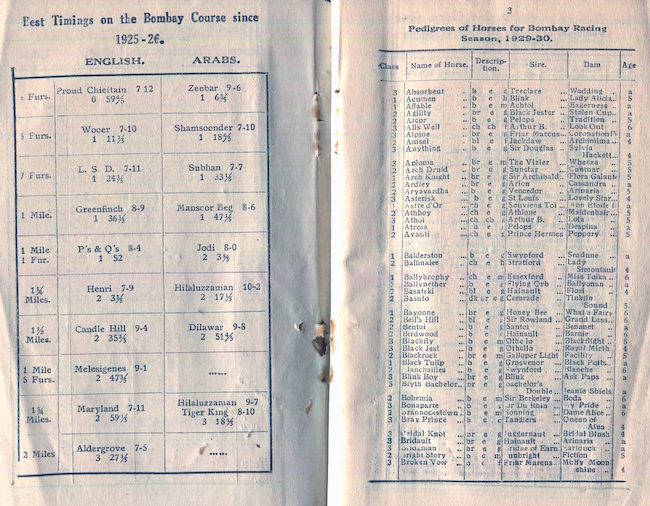 Best Timings on the Bombay Course since
1925-26.
ENGLISH. ARABS.
Furs. Proud Chieftain 7 12 Zeebar 9-6
0 59⅘ 1 6⅖
5 Furs. Wooer 7-10 Shamsoonder 7-10
1 11⅕ 1 18⅖
7 Furs. L. S. D. 7-11 Subhan 7-7
1 24⅗ 1 33⅕
1 Mile. Greenfinch 8-9 Manscor Beg 8-6
1 36⅕ 1 47⅖
1 Mile P's & Q's 8-4 Jodi 8-0
1 Fur. 1 52 2 3⅕
Henri 7-9 Hilaluzzaman 10-2
Miles. 2 3⅗ 2 17⅕
Candle Hill 9-4 Dilawar 9-8
Miles. 2 35⅖ 2 51⅘
1 Mile Melesigenes 9-1 ......
5 Furs. 2 47⅗
Maryland 7-11 Hilaluzzaman 9-7
Tiger King 8-10
Miles. 2 59⅕ 3 18⅖
2 Miles Aldergrove 7-5 ......
3 27⅕
3
Pedigrees of Horses for Bombay Racing
Season, 1929-30.
Class Name of Horse. Descrip- Sire. Dam. Age
tion.
3 Absorbent b e g Treclare Wadding a
1 Acumen b e h Blink Lady Alicia 5
1 Affable b e m Achtoi Eagerness a
2 Agility br e g Black Jester Stolen Cup a
2 Alcor b e g Pelops Tradition 5
3 Alls Well ch cb Arthur B. Look Out 6
3 Alpine br e g Friar Marcus a
2 Amsel bl e Jackdaw Archimima 4
3 Anything b e g Sir Douglas Sylvia
Hackett 4
3 Aploma br e m The Vizier Wheeze 5
2 Arch Druid br e g Sunstar 5
1 Arch Knight br e g Sir Archibald 5
2 Ardley br e g Arion Cassandra a
2 Aryavardha b e g Vencedor Arinaris 5
3 Asterisk b e g St Louis Lovely Star 4
Astre d'Or ch e g Souviens Toi 4
2 Athboy ch e g Athlone Maidenhair 5
3 Athol ch cb Arthur B. Lola 5
1 Atreus e g Pelops Despina a
2 Avanti ch e g Prince Hermes Peppery 5
1 Balderston b e g Swynford Seadune a
2 Ballinalee ch e Stratford Lady
Simontault 4
1 Ballybrophy ch e m Essexford Miss Toka 6
2 Ballynether b e g Flying Orb Ballyoman a
2 Basatski bl e g Hainault Flori 4
2 Basuto dk cr e g Comrade Tinklin
Sound 5
1 Bayonne br e g Honey Bee What a Fairy 6
2 Bell's Hill bl e Sir Rowland Grand Lass 6
2 Bentoi b e g Santoi Benanet a
2 Birdwood b e g Hainault Barnie 6
3 Blackfly b e m Othello Blackflight 5
3 Black Jest b e g Othello Royal Mirth 4
2 Blackrock br e m Galloper Light Facility 5
1 Black Tulip b e g Grosvenor Black Potts a
Blanchailles b e g Swynford Blanche 6
3 Blink Boy br e g Blink Ask Papa a
3 Blyth Bachelor br e g Bachelor's
Double Jeanie Shiels a
2 Bohemia b e m Sir Berkeley Boda 6
3 Bonaparte b e g Or Du Rhin My Pride a
2 Brannockstown b e m Sonning Dame Alice 6
3 Bray Prince b e c Tangiers Queen of
4
3 Bridal Knot b e g Juggernaut Bridal Blush 4
3 Bridault br e g Hainault Arinaria a
Bridge of Earn a
2 Bright Story b e m Sunbright Fiction 5
3 Broken Vow b e g Friar Marcus Molly Moon
shine 4